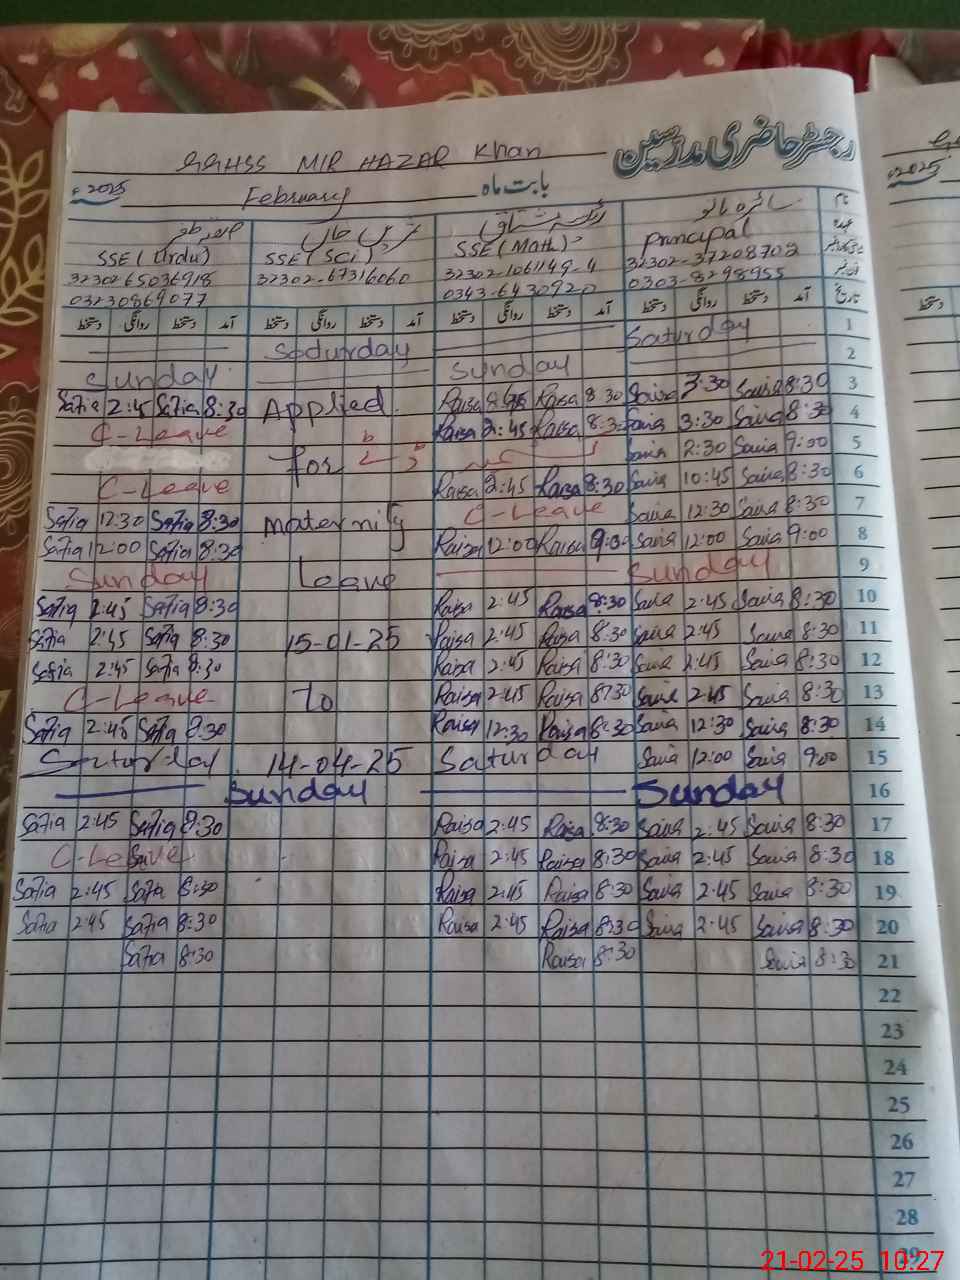 GGHSS MIR HAZAR Khan رجسٹر حاضری مدرسین
2025ء February بابت ماہ
نام
صفیہ سائرہ بانو
SSE (Urdu) SSE (Sci) SSE (Math) Principal
32302-6503691-8 32302-6731606-0 32302-1061149-4 32302-3720870-2
03230869077 0343-6430920 0303-8298955
دستخط روانگی دستخط آمد دستخط روانگی دستخط آمد دستخط روانگی دستخط آمد دستخط روانگی دستخط آمد تاریخ
Saturday Saturday 1
Sunday Sunday 2
Safia 2:45 Safia 8:30 Applied Raisa Raisa 8:30 Saira 3:30 Saira 8:30 3
C-Leave Raisa 2:45 Raisa 8:30 Saira 3:30 Saira 8:30 4
for Saira 2:30 Saira 9:00 5
C-Leave Raisa 2:45 Raisa 8:30 Saira 10:45 Saira 8:30 6
Safia 12:30 Safia 8:30 Maternity C-Leave Saira 12:30 Saira 8:30 7
Safia 12:00 Safia 8:30 Raisa 12:00 Raisa 9:00 Saira 12:00 Saira 9:00 8
Sunday Leave Sunday 9
Safia 2:45 Safia 8:30 Raisa 2:45 Raisa 8:30 Saira 2:45 Saira 8:30 10
Safia 2:45 Safia 8:30 15-01-25 Raisa 2:45 Raisa 8:30 Saira 2:45 Saira 8:30 11
Safia 2:45 Safia 8:30 Raisa 2:45 Raisa 8:30 Saira 2:45 Saira 8:30 12
C-Leave To Raisa 2:45 Raisa 8:30 Saira 2:45 Saira 8:30 13
Safia 2:45 Safia 8:30 Raisa 12:30 Raisa 8:30 Saira 12:30 Saira 8:30 14
Saturday 14-04-25 Saturday Saira 12:00 Saira 9:00 15
Sunday Sunday 16
Safia 2:45 Safia 8:30 Raisa 2:45 Raisa 8:30 Saira 2:45 Saira 8:30 17
C-Leave Raisa 2:45 Raisa 8:30 Saira 2:45 Saira 8:30 18
Safia 2:45 Safia 8:30 Raisa 2:45 Raisa 8:30 Saira 2:45 Saira 8:30 19
Safia 2:45 Safia 8:30 Raisa 2:45 Raisa 8:30 Saira 2:45 Saira 8:30 20
Safia 8:30 Raisa 8:30 Saira 8:30 21
22
23
24
25
26
27
28
29
2025ء
21-02-25 10:27